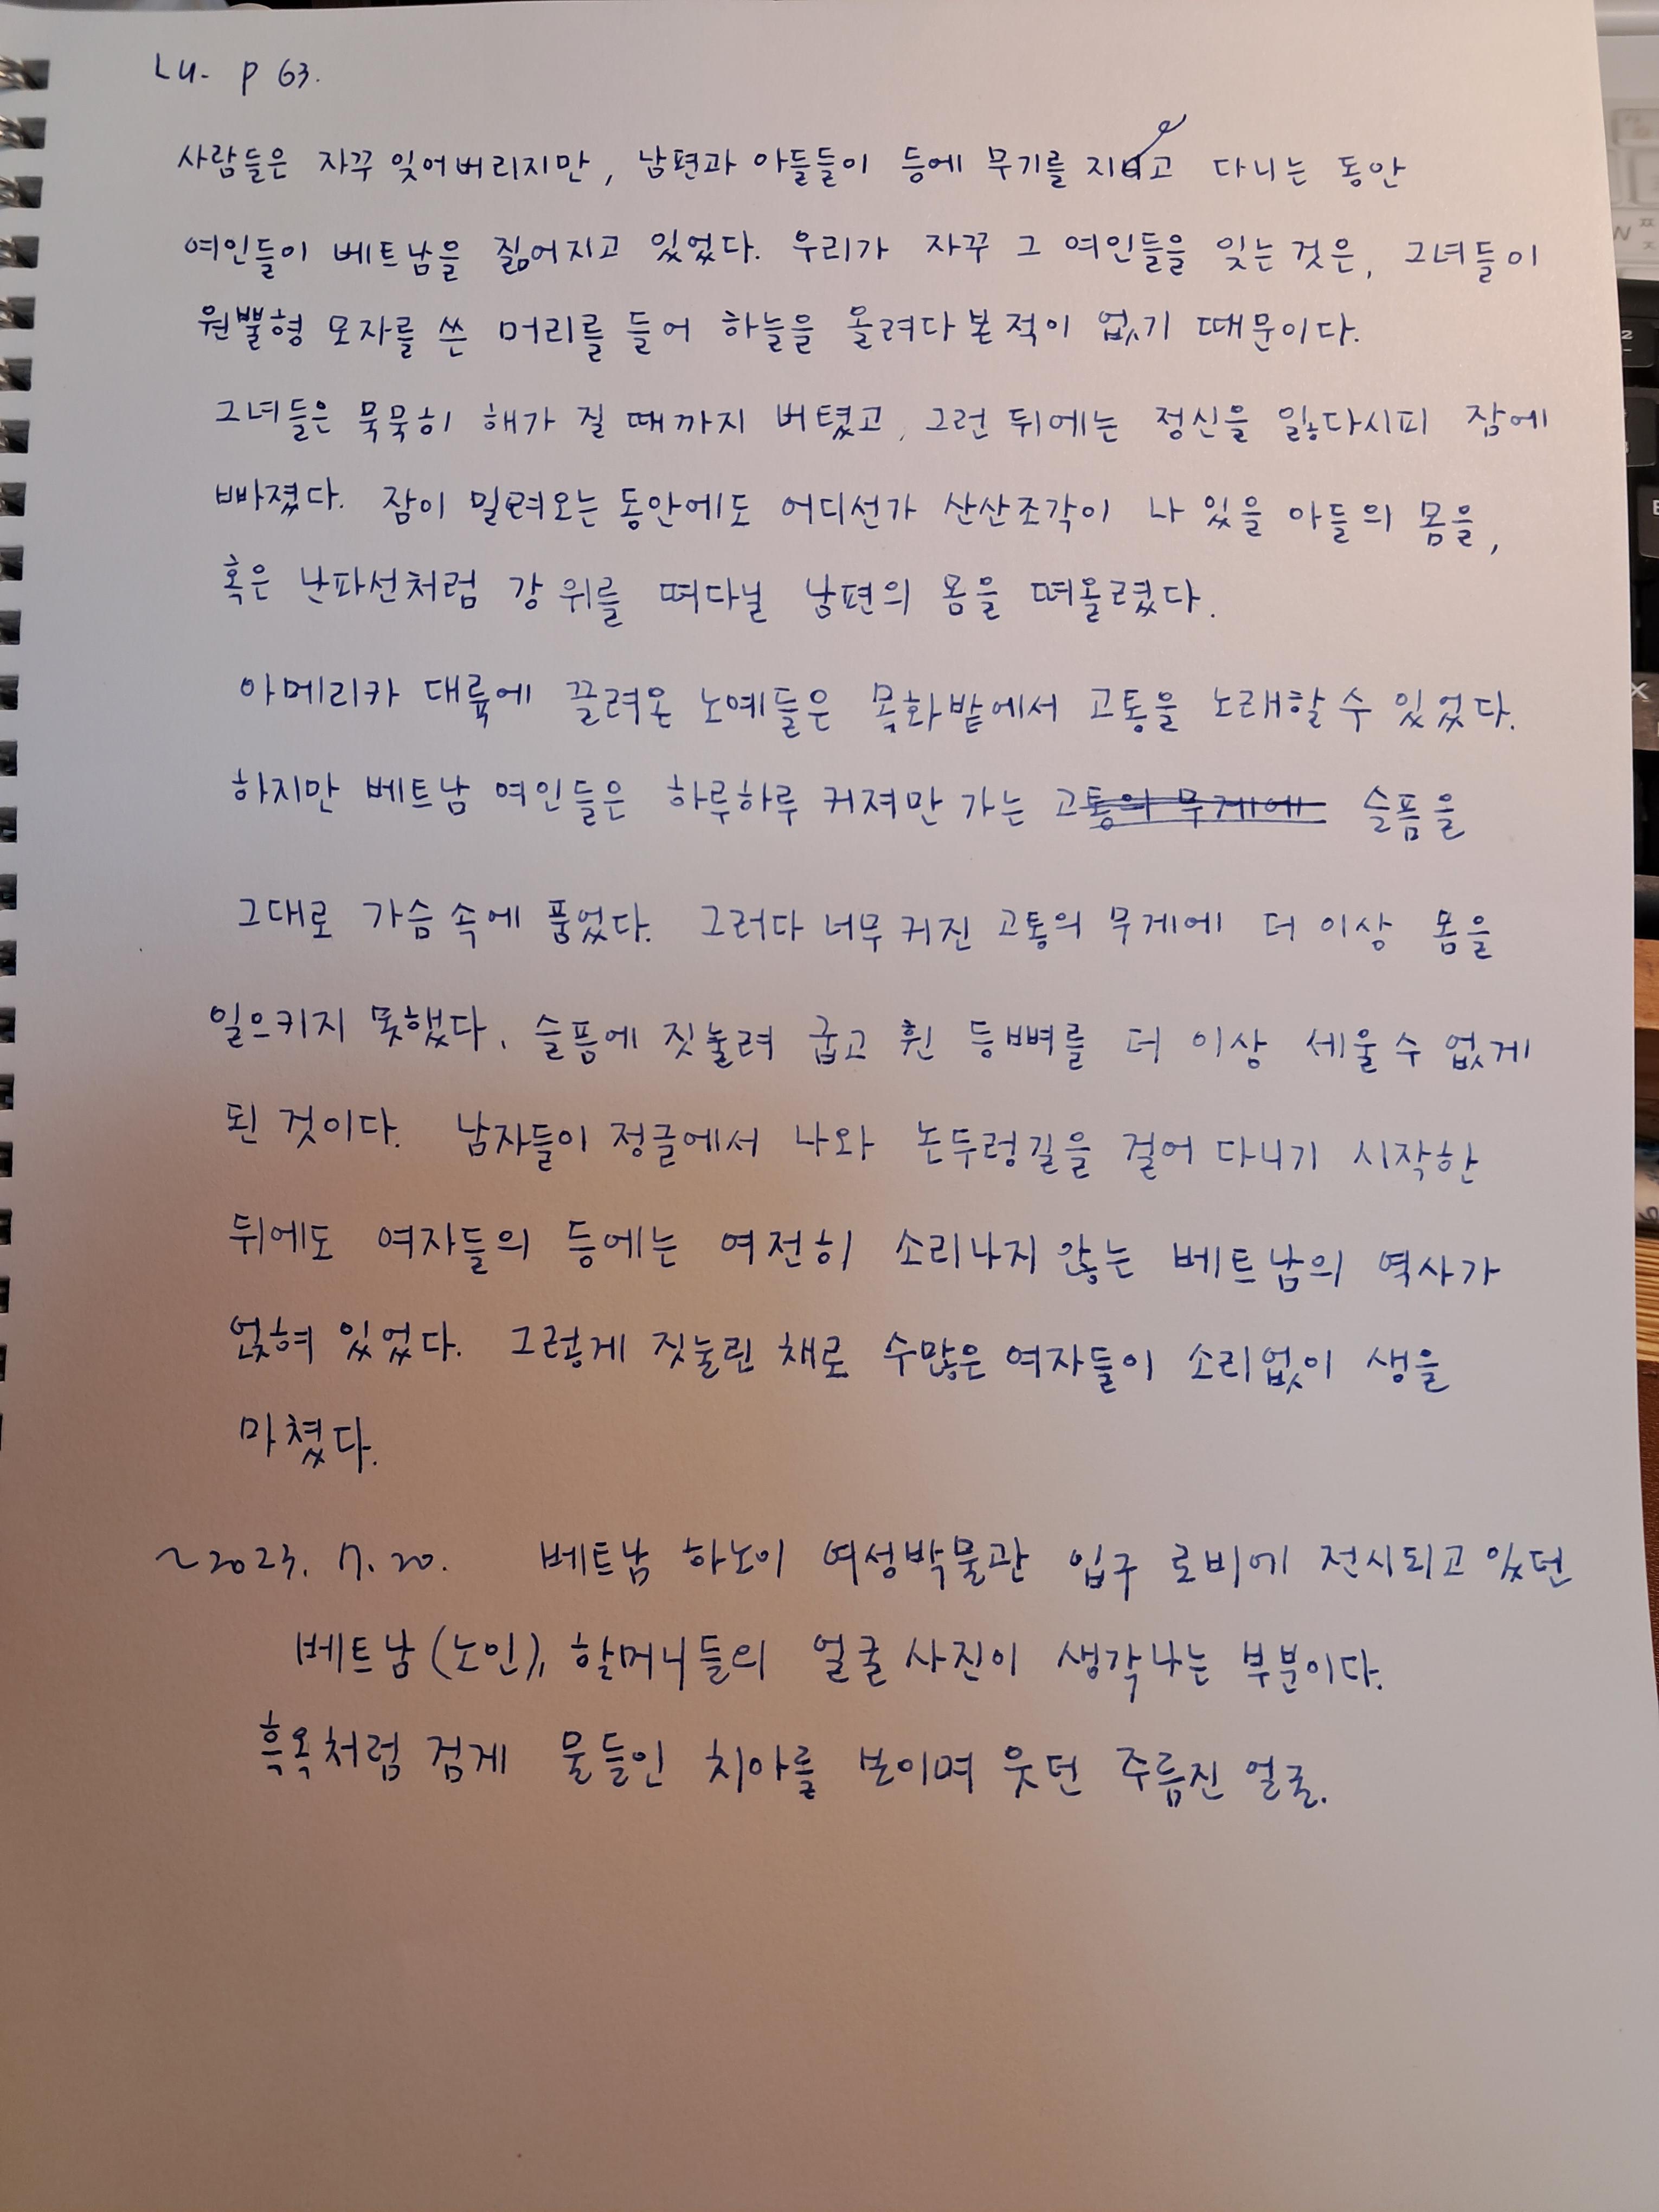 Lu. p 63.
사람들은 자꾸 잊어버리지만, 남편과 아들들이 등에 무기를 지고 다니는 동안
여인들이 베트남을 짊어지고 있었다. 우리가 자꾸 그 여인들을 잊는 것은, 그녀들이
원뿔형 모자를 쓴 머리를 들어 하늘을 올려다 본 적이 없기 때문이다.
그녀들은 묵묵히 해가 질 때까지 버텼고, 그런 뒤에는 정신을 잃다시피 잠에
빠졌다. 잠이 밀려오는 동안에도 어디선가 산산조각이 나 있을 아들의 몸을,
혹은 난파선처럼 강 위를 떠다닐 남편의 몸을 떠올렸다.
아메리카 대륙에 끌려온 노예들은 목화밭에서 고통을 노래할 수 있었다.
하지만 베트남 여인들은 하루하루 커져만 가는 고통의 무게에 슬픔을
그대로 가슴 속에 품었다. 그러다 너무 커진 고통의 무게에 더 이상 몸을
일으키지 못했다. 슬픔에 짓눌려 굽고 휜 등뼈를 더 이상 세울 수 없게
된 것이다. 남자들이 정글에서 나와 논두렁길을 걸어 다니기 시작한
뒤에도 여자들의 등에는 여전히 소리나지 않는 베트남의 역사가
얹혀 있었다. 그렇게 짓눌린 채로 수많은 여자들이 소리없이 생을
마쳤다.
~2023. 7. 20. 베트남 하노이 여성박물관 입구 로비에 전시되고 있던
베트남 (노인), 할머니들의 얼굴 사진이 생각나는 부분이다.
흑옥처럼 검게 물들인 치아를 보이며 웃던 주름진 얼굴.